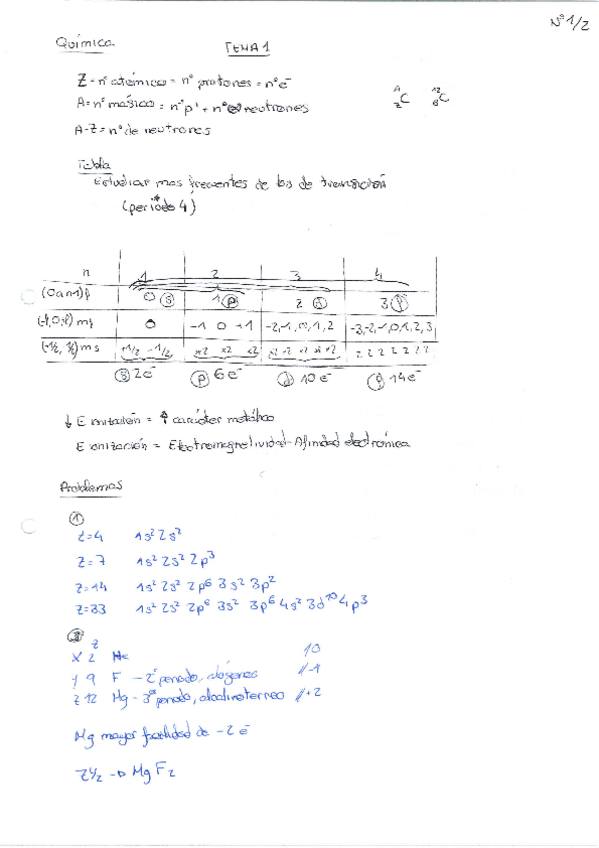 Nº 1/2
Química
TEMA 1
Z = nº atómico = nº protones = nº e⁻
A = nº másico = nº p⁺ + nº neutrones
A-Z = nº de neutrones
A Z C 12 6 C
Tabla
Estudiar mas frecuentes de los de transición
(periodo 4)
n 1 2 3 4
(0 a n-1) l 0 (s) 1 (p) 2 (d) 3 (f)
(-l,0,l) ml 0 -1 0 +1 -2,-1,0,1,2 -3,-2,-1,0,1,2,3
(-1/2, 1/2) ms +1/2 -1/2 x2 x2 x2 x2 x2 x2 x2 x2 2 2 2 2 2 2 2
(s) 2e⁻ (p) 6e⁻ (d) 10e⁻ (f) 14e⁻
↓ E ionización = ↑ carácter metálico
E ionización = Electronegatividad - Afinidad electrónica
Problemas
①
Z=4 1s² 2s²
Z=7 1s² 2s² 2p³
Z=14 1s² 2s² 2p⁶ 3s² 3p²
Z=33 1s² 2s² 2p⁶ 3s² 3p⁶ 4s² 3d¹⁰ 4p³
②
Z
X 2 He 10
Y 9 F - 2º periodo, alógenos -1
Z 12 Mg - 3º periodo, alcalinoterreo +2
Mg mayor facilidad de -2 e⁻
ZY₂ → MgF₂